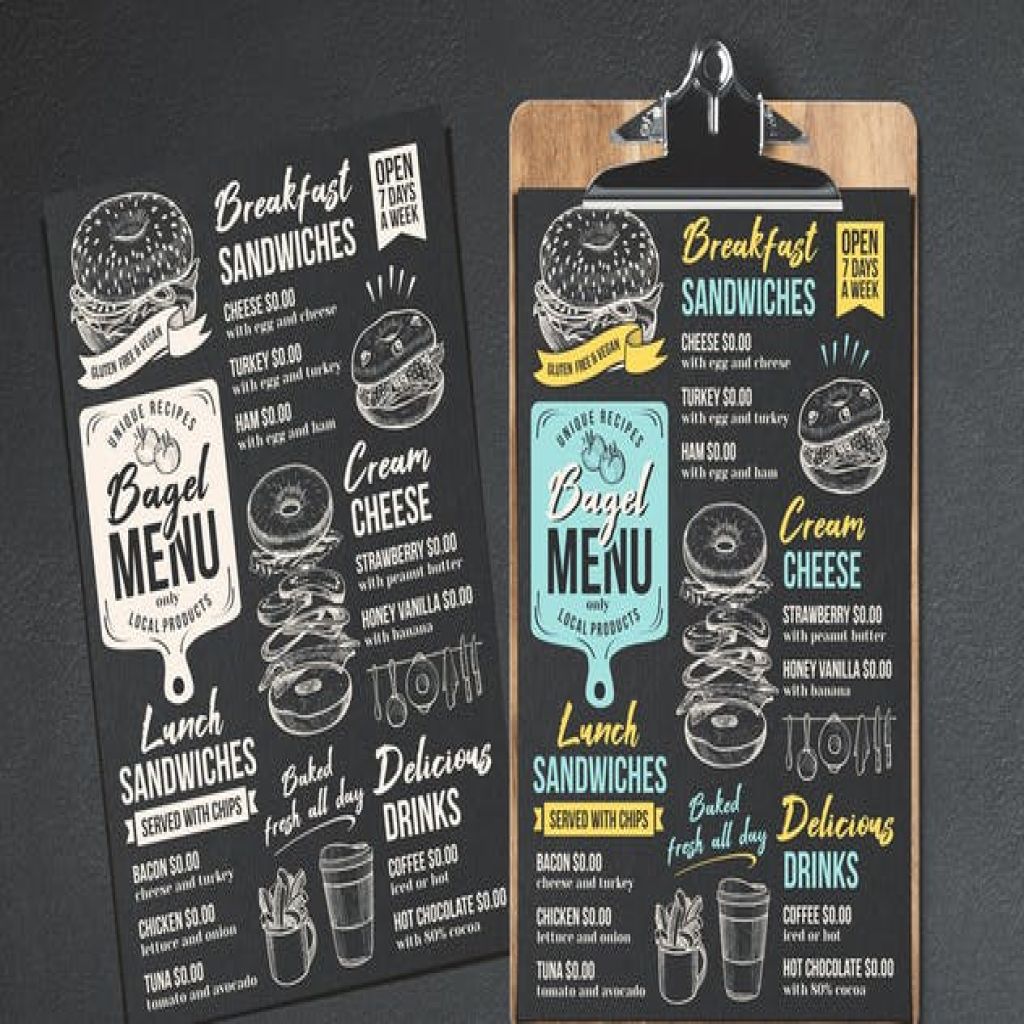 Breakfast
SANDWICHES
OPEN
7 DAYS
A WEEK
CHEESE $0.00
with egg and cheese
TURKEY $0.00
with egg and turkey
HAM $0.00
with egg and ham
GLUTEN FREE & VEGAN
UNIQUE RECIPES
Bagel
MENU
only
LOCAL PRODUCTS
Cream
CHEESE
STRAWBERRY $0.00
with peanut butter
HONEY VANILLA $0.00
with banana
Lunch
SANDWICHES
SERVED WITH CHIPS
BACON $0.00
cheese and turkey
CHICKEN $0.00
lettuce and onion
TUNA $0.00
tomato and avocado
Baked
fresh all day
Delicious
DRINKS
COFFEE $0.00
iced or hot
HOT CHOCOLATE $0.00
with 80% cocoa
Breakfast
SANDWICHES
OPEN
7 DAYS
A WEEK
CHEESE $0.00
with egg and cheese
TURKEY $0.00
with egg and turkey
HAM $0.00
with egg and ham
GLUTEN FREE & VEGAN
UNIQUE RECIPES
Bagel
MENU
only
LOCAL PRODUCTS
Cream
CHEESE
STRAWBERRY $0.00
with peanut butter
HONEY VANILLA $0.00
with banana
Lunch
SANDWICHES
SERVED WITH CHIPS
BACON $0.00
cheese and turkey
CHICKEN $0.00
lettuce and onion
TUNA $0.00
tomato and avocado
Baked
fresh all day
Delicious
DRINKS
COFFEE $0.00
iced or hot
HOT CHOCOLATE $0.00
with 80% cocoa